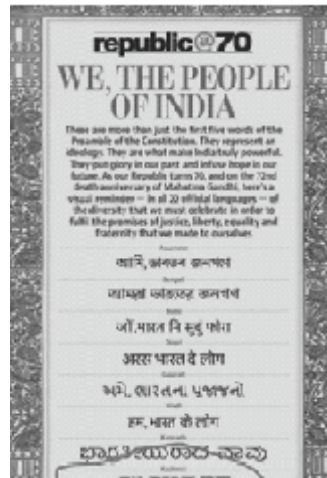 republic@70
WE, THE PEOPLE
OF INDIA
These are more than just the first five words of the
Preamble of the Constitution. They represent an
ideology. They are what make India truly powerful.
They put glory in our past and infuse hope in our
future. As our Republic turns 70, and on the 72nd
death anniversary of Mahatma Gandhi, here's a
visual reminder — in all 22 official languages — of
the diversity that we must celebrate in order to
fulfil the promises of justice, liberty, equality and
fraternity that we made to ourselves
Assamese
আমি,
Bengali
আমরা ভারতের জনগণ
Bodo
जों, भारत नि सुबुं फोरा
Dogri
अस भारत दे लोग
Gujarati
અમે, ભારતના પ્રજાજનો
Hindi
हम, भारत के लोग
Kannada
ಭಾರತೀಯರಾದ-ನಾವು
Kashmiri